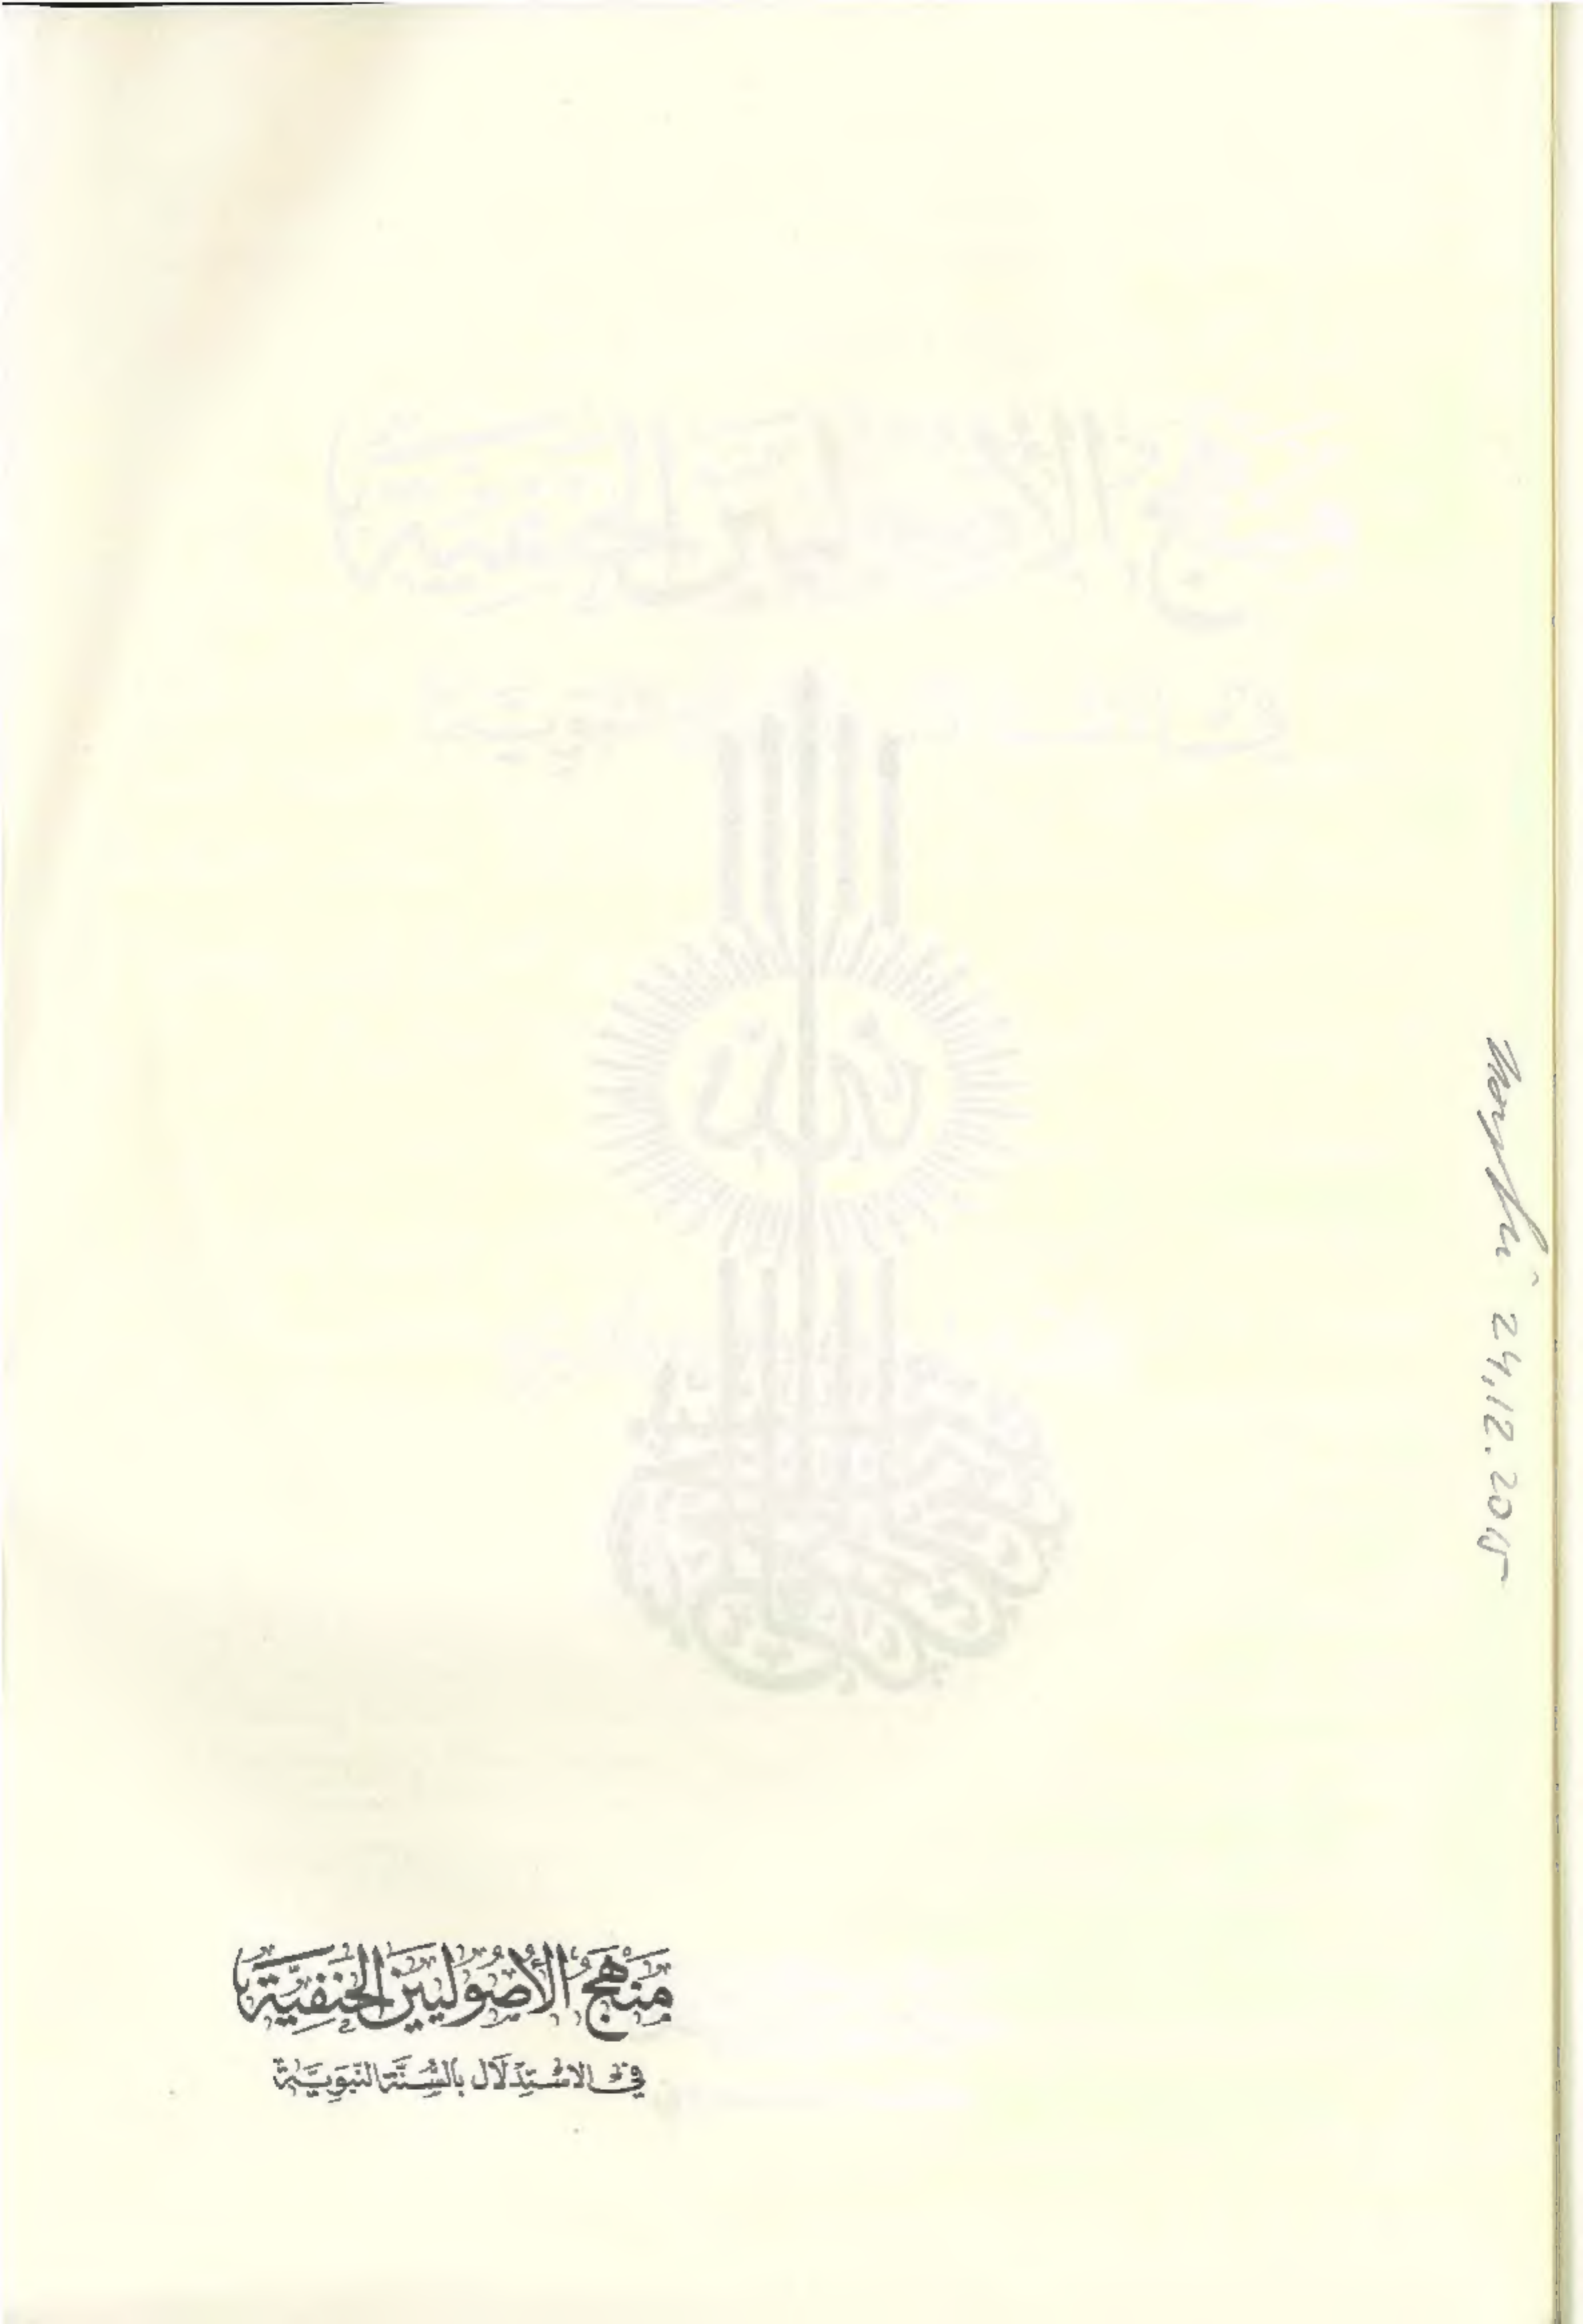 مَنْهَجُ الأُصُولِيِّينَ الحَنَفِيَّةِ
فِي الاسْتِدْلَالِ بِالسُّنَّةِ النَّبَوِيَّةِ
24.12.2015